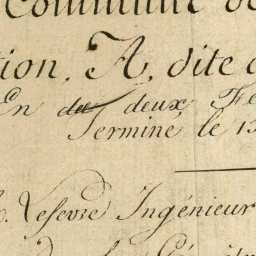 Commune de
ion. A, dite
En deux Fe
Terminé, le 15
Lefevre Ingénieur